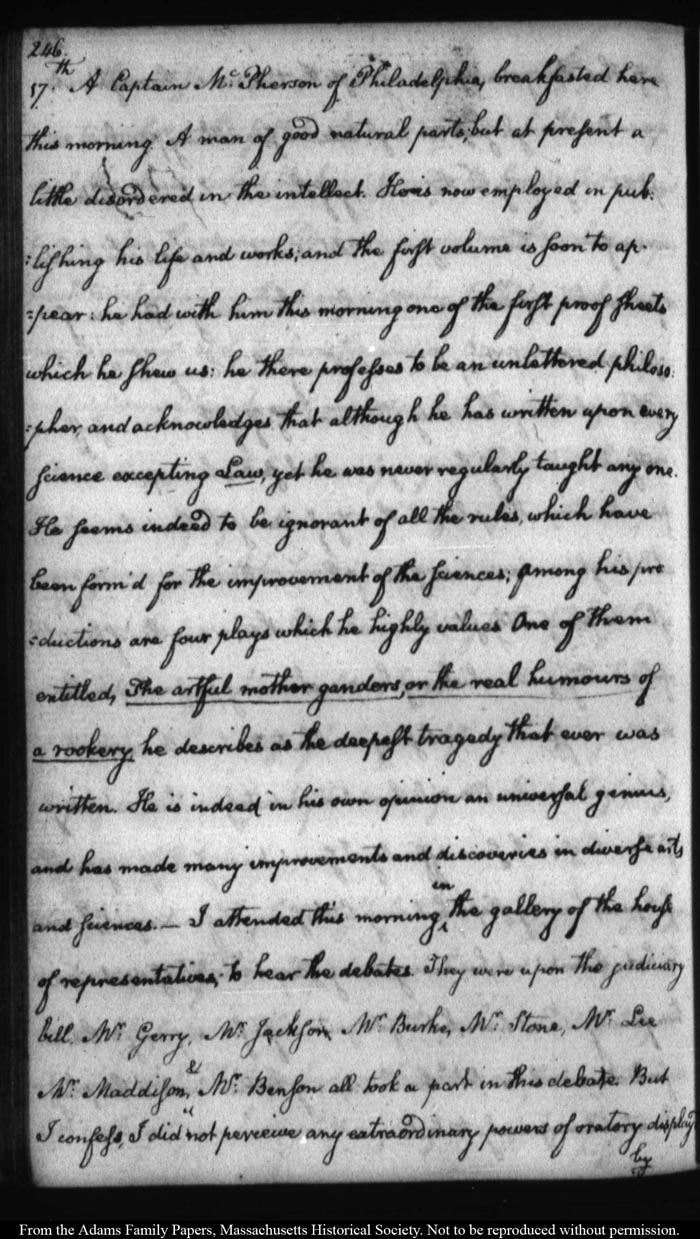 246.
17.th A Captain Mc.Pherson of Philadelphia, breakfasted here
this morning. A man of good natural parts, but at present a
little disordered in the intellect. He is now employed in pub:
:lishing his life and works; and the first volume is soon to ap-
=pear: he had with him this morning one of the first proof sheets
which he shew us: he there professes to be an unlettered philoso:
:pher, and acknowledges that although he has written upon every
science excepting Law, yet he was never regularly taught any one.
He seems indeed to be ignorant of all the rules, which have
been form'd for the improvement of the sciences; among his pro
=ductions are four plays which he highly values One of them
entitled, The artful mother ganders, or the real humours of
a rookery, he describes as the deepest tragedy that ever was
written. He is indeed in his own opinion an universal genius,
and has made many improvements and discoveries in diverse arts
and sciences. — I attended this morning in the gallery of the house
of representatives, to hear the debates. They were upon the judiciary
bill. Mr. Gerry, Mr. Jackson, Mr. Burke, Mr. Stone, Mr. Lee
Mr. Maddison, & Mr. Benson all took a part in this debate. But
I confess, I did not perceive any extraordinary powers of oratory display'd
by
From the Adams Family Papers, Massachusetts Historical Society. Not to be reproduced without permission.